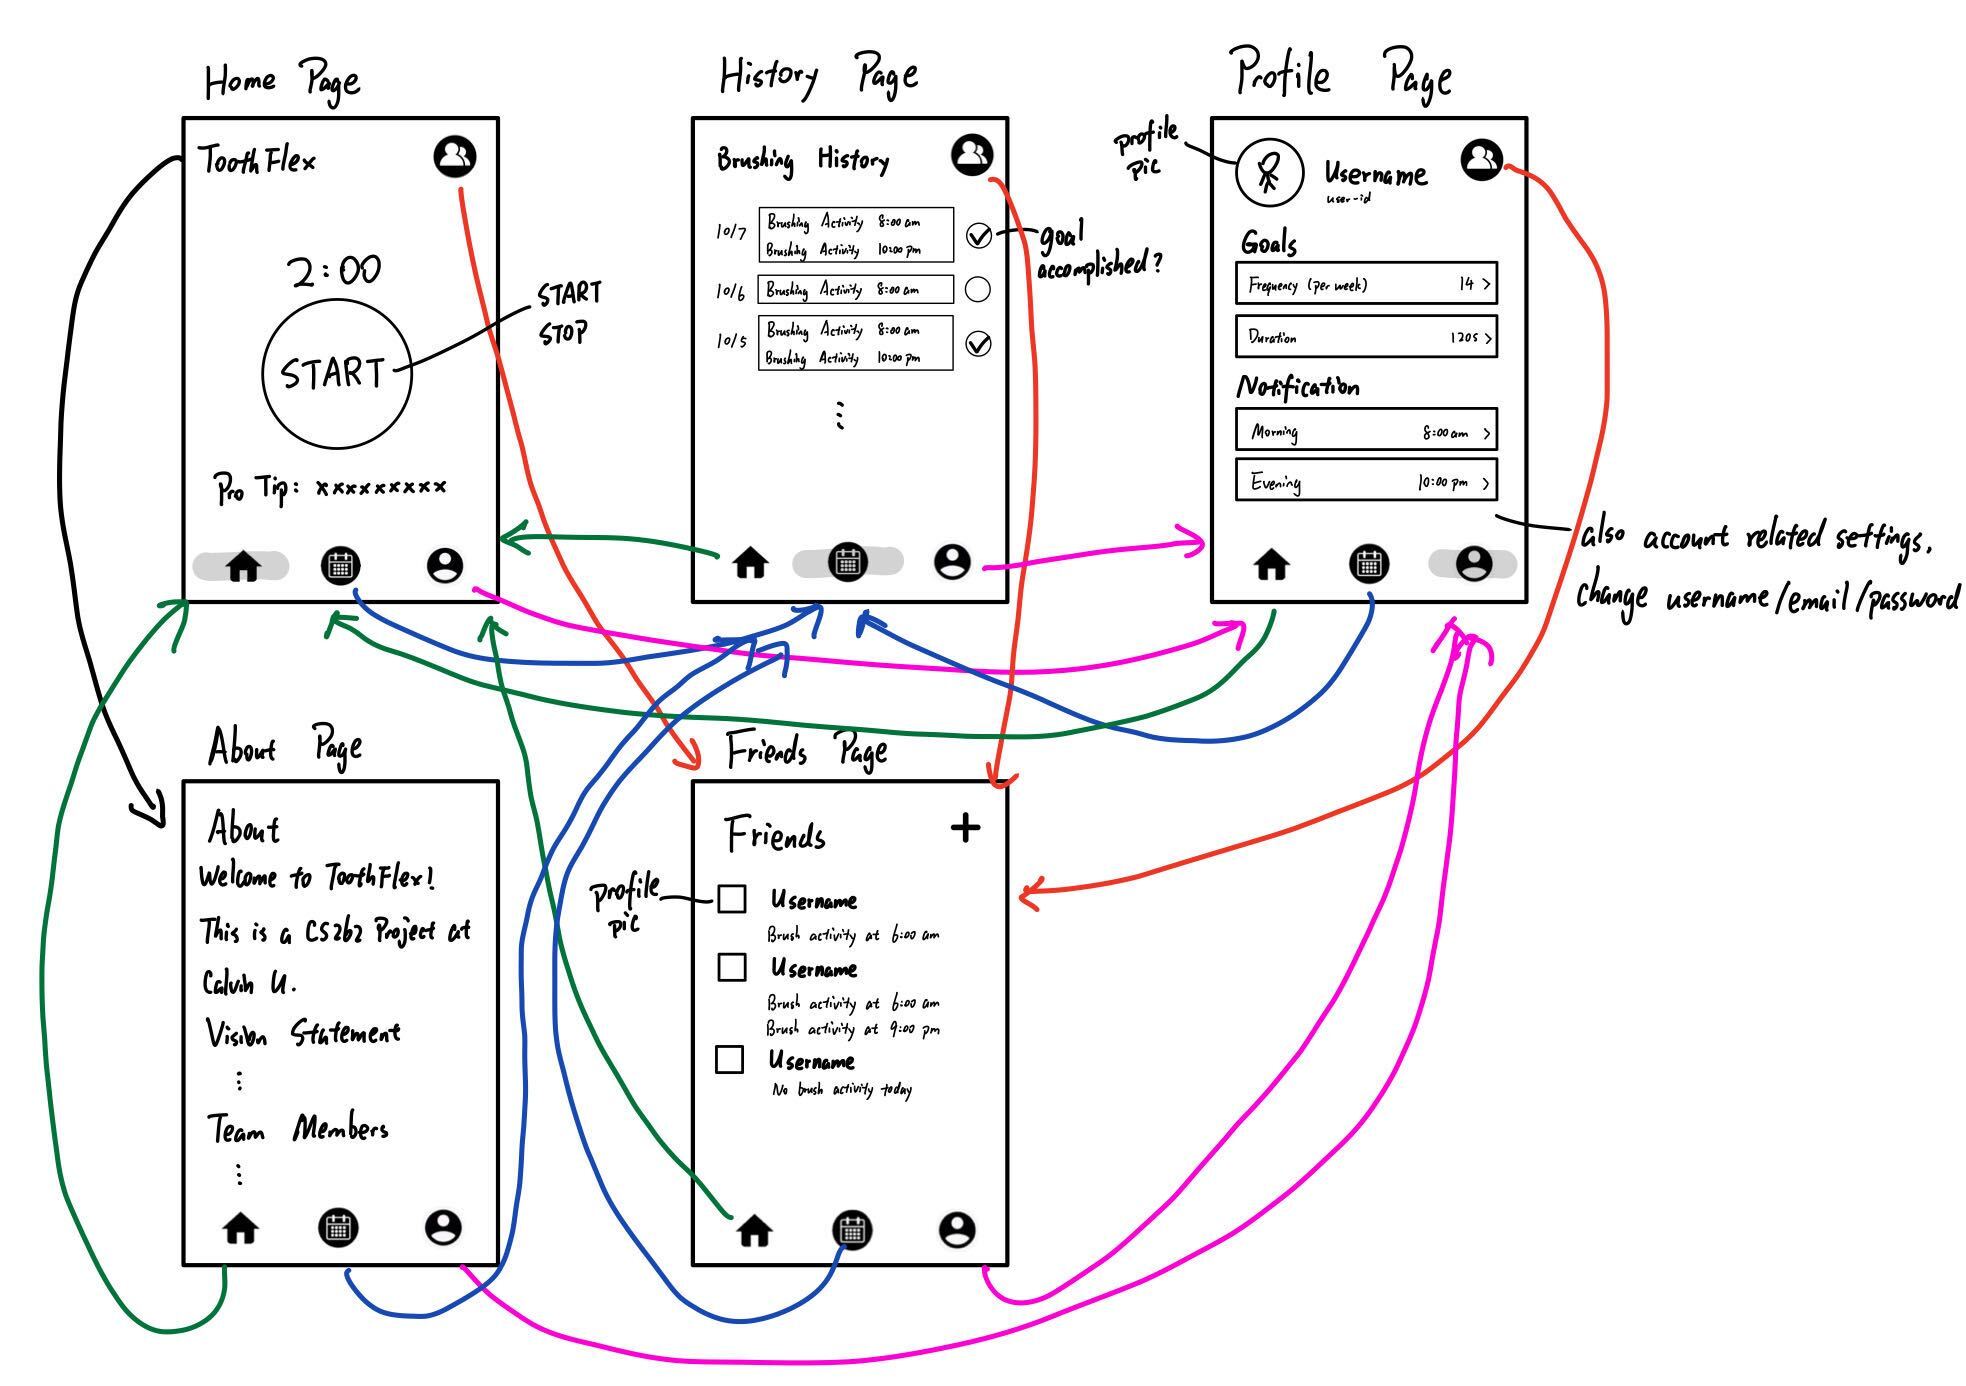 Home Page
ToothFlex
2:00
START
START
STOP
Pro Tip: xxxxxxxxx
History Page
Brushing History
10/7
Brushing Activity 8:00 am
Brushing Activity 10:00 pm
goal
accomplished?
10/6
Brushing Activity 8:00 am
10/5
Brushing Activity 8:00 am
Brushing Activity 10:00 pm
Profile Page
profile
pic
Username
user-id
Goals
Frequency (per week) 14 >
Duration 120s >
Notification
Morning 8:00 am >
Evening 10:00 pm >
also account related settings,
change username/email/password
About Page
About
Welcome to ToothFlex!
This is a CS262 Project at
Calvin U.
Vision Statement
Team Members
Friends Page
Friends +
profile
pic
Username
Brush activity at 6:00 am
Username
Brush activity at 6:00 am
Brush activity at 9:00 pm
Username
No brush activity today